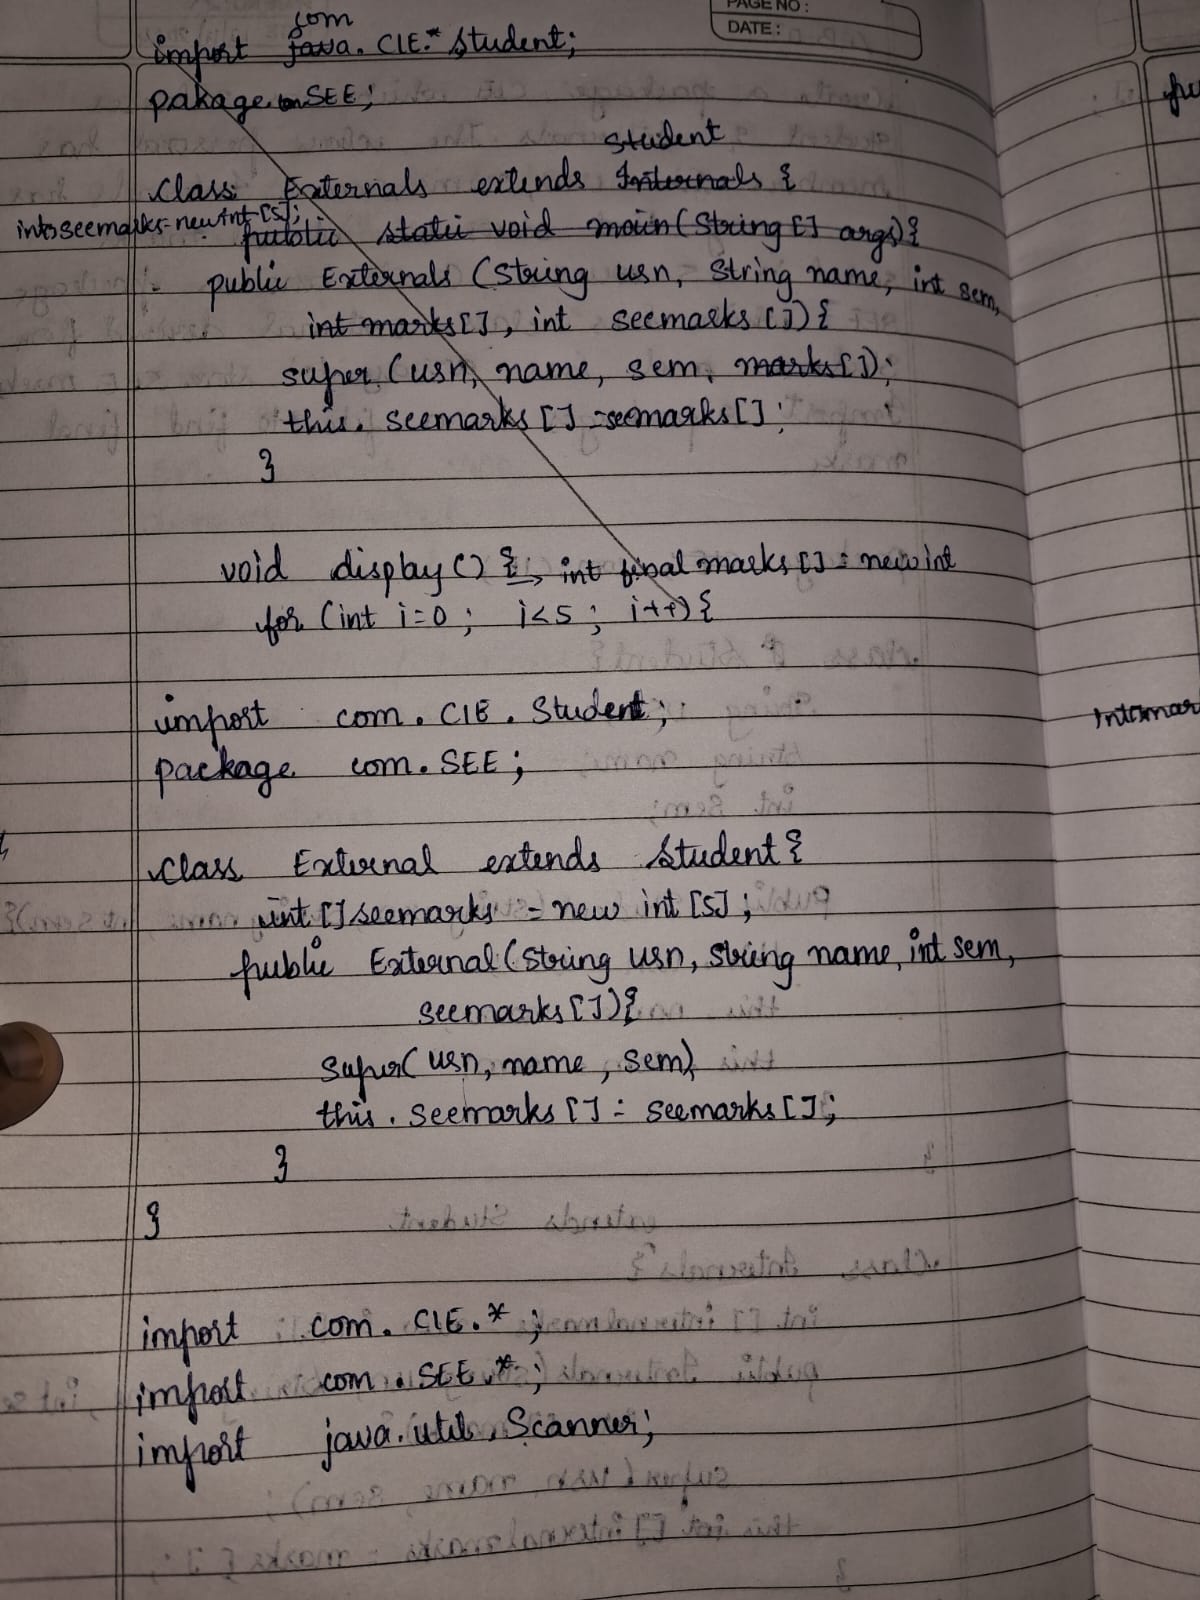 PAGE NO:
DATE:
com
import java. CIE.* Student;
pakage SEE;
Student
class Externals extends Internals {
int[] seemarks = new int [5];
public static void main (String [] args) {
public Externals (String usn, String name, int sem,
int marks [], int seemarks []) {
super (usn, name, sem, marks []);
this. seemarks [] = seemarks [];
}
void display () { int final marks [] = new int
for (int i=0; i<5; i++) {
import com. CIE. Student;
package com. SEE;
class External extends Student {
int [] seemarks = new int [5];
public External (String usn, String name, int sem,
seemarks []) {
super (usn, name, sem)
this. seemarks [] = seemarks [];
}
}
import com. CIE. *;
import com. SEE. *;
import java. util. Scanner;